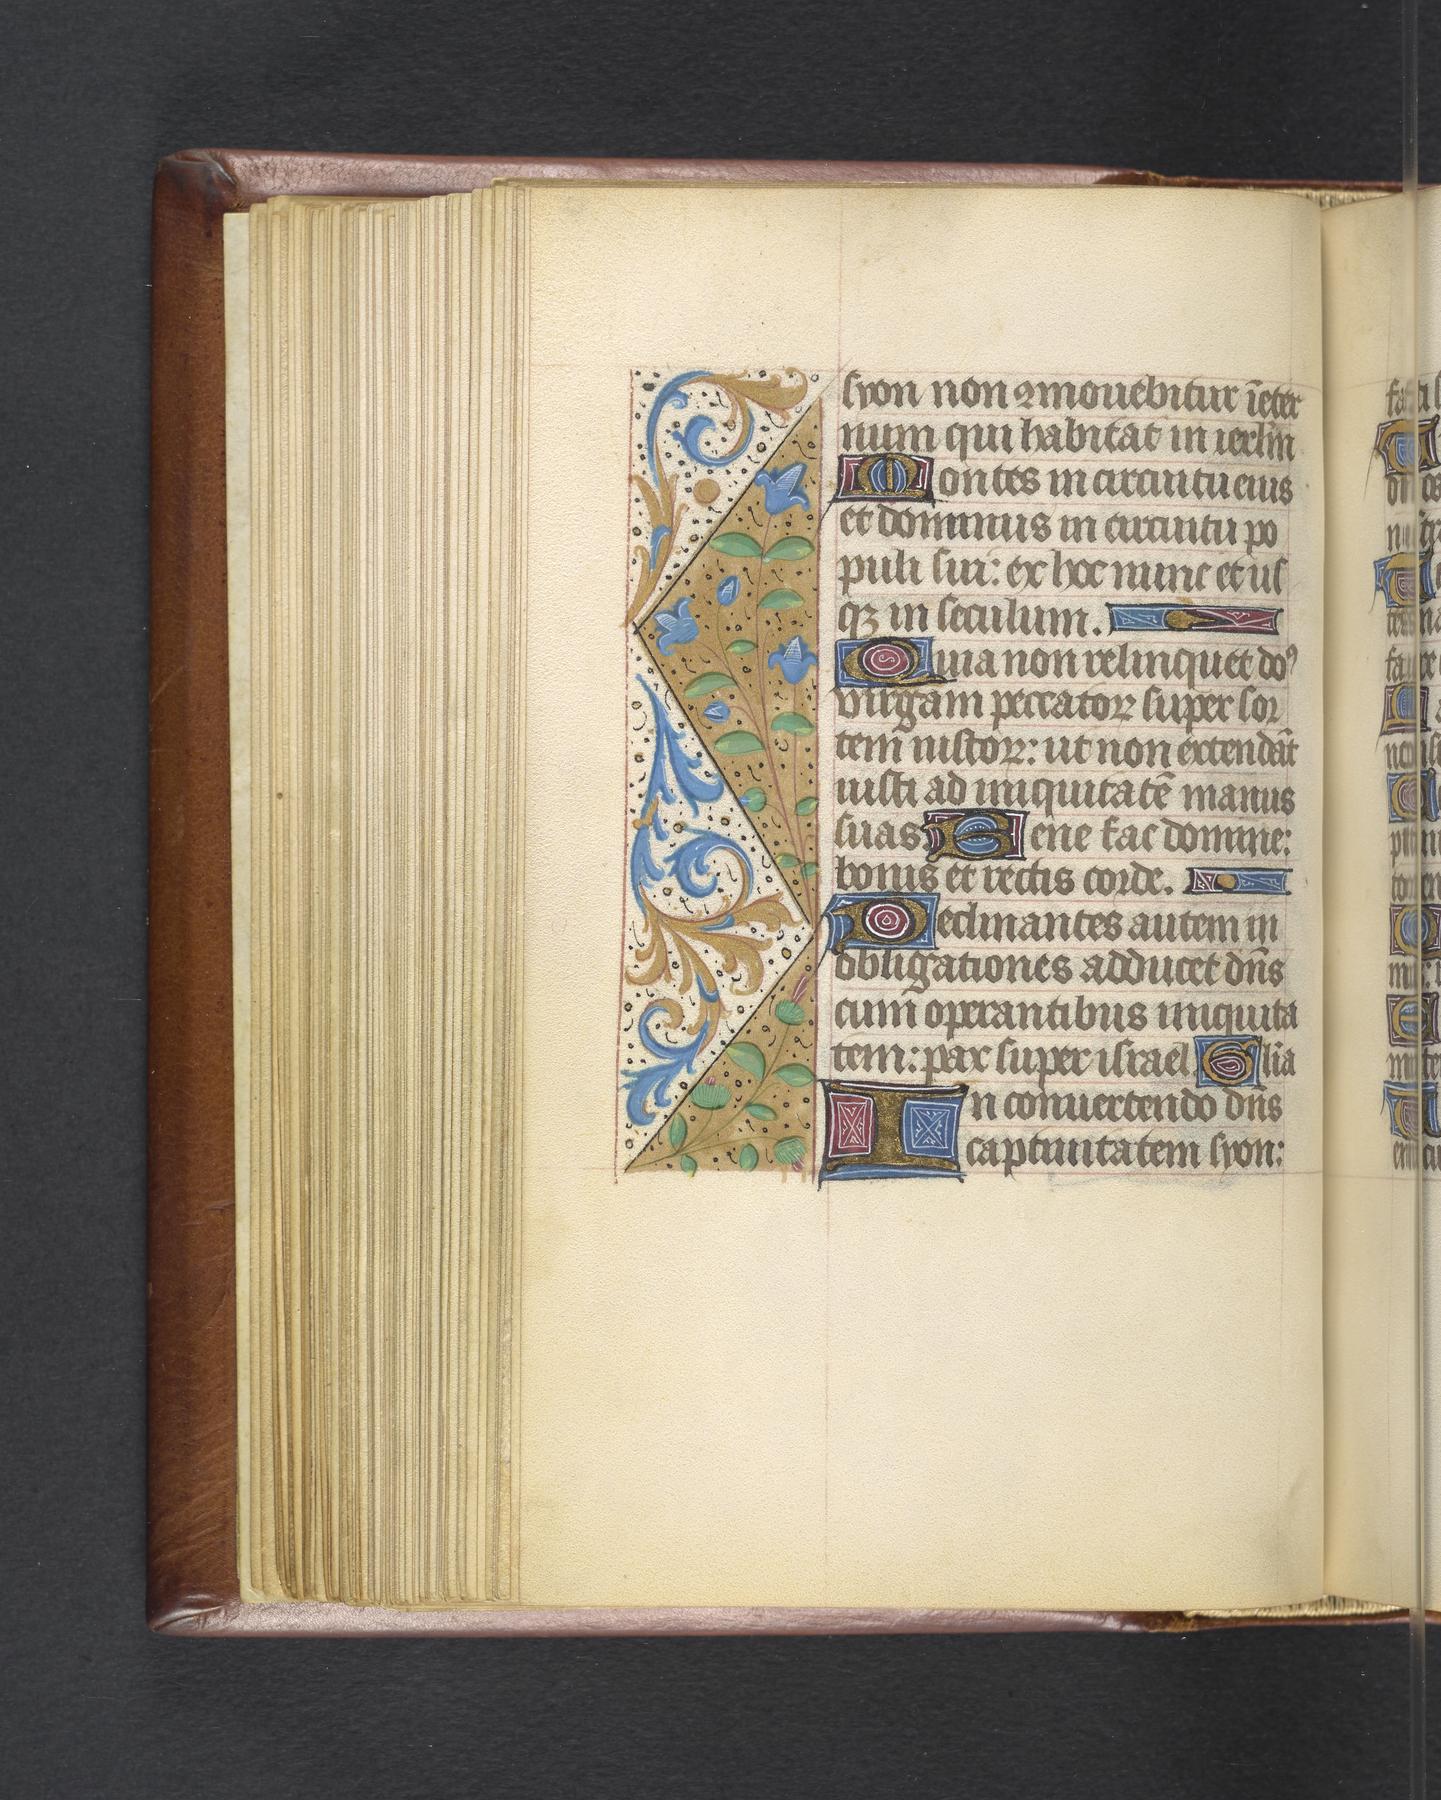 syon non ꝯmouebitur īeter
num qui habitat in ierl̄m
Montes in circuitu eius
et dominus in circuitu po
puli sui: ex hoc nunc et us
qꝫ in seculum.
Quia non relinquet doꝰ
virgam peccatoꝝ super sor
tem iustoꝝ: ut non extendāt
iusti ad iniquitatē manus
suas Bene fac domine:
bonis et rectis corde.
Declinantes autem in
obligationes adducet dn̄s
cum operantibus iniquita
tem: pax super israel Glīa
In conuertendo dn̄s
captiuitatem syon: